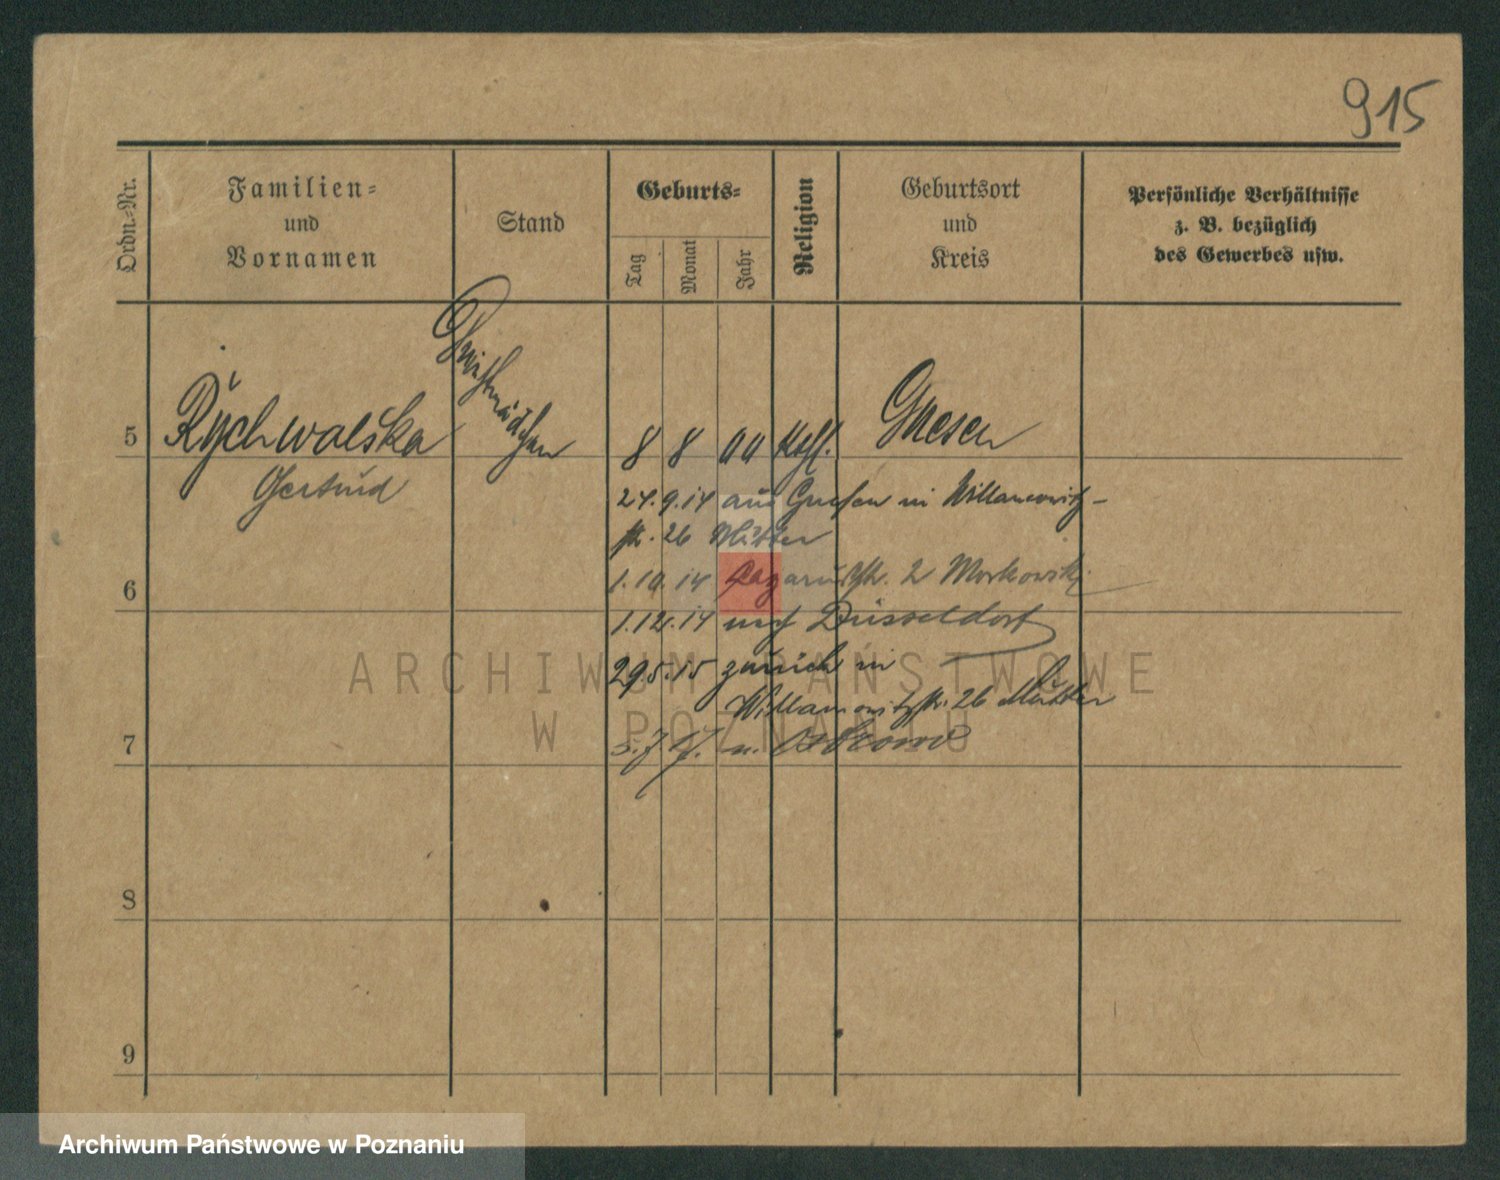 915
Ordn.=Nr.
Familien=
und
Vornamen
Stand
Geburts=
Tag
Monat
Jahr
Religion
Geburtsort
und
Kreis
Persönliche Verhältnisse
z. B. bezüglich
des Gewerbes usw.
5
Rychwalska
Gertrud
Dienstmädchen
8 8 00 Kath. Gnesen
24.9.14 aus Gnesen in Willamowitz-
str. 26 Mutter
6
1.10.14 str. 2
1.12.14 nach Düsseldorf
29.5.15 zurück in
Willamowitzstr. 26 Mutter
7
8
9
ARCHIWUM PAŃSTWOWE
W POZNANIU
Archiwum Państwowe w Poznaniu